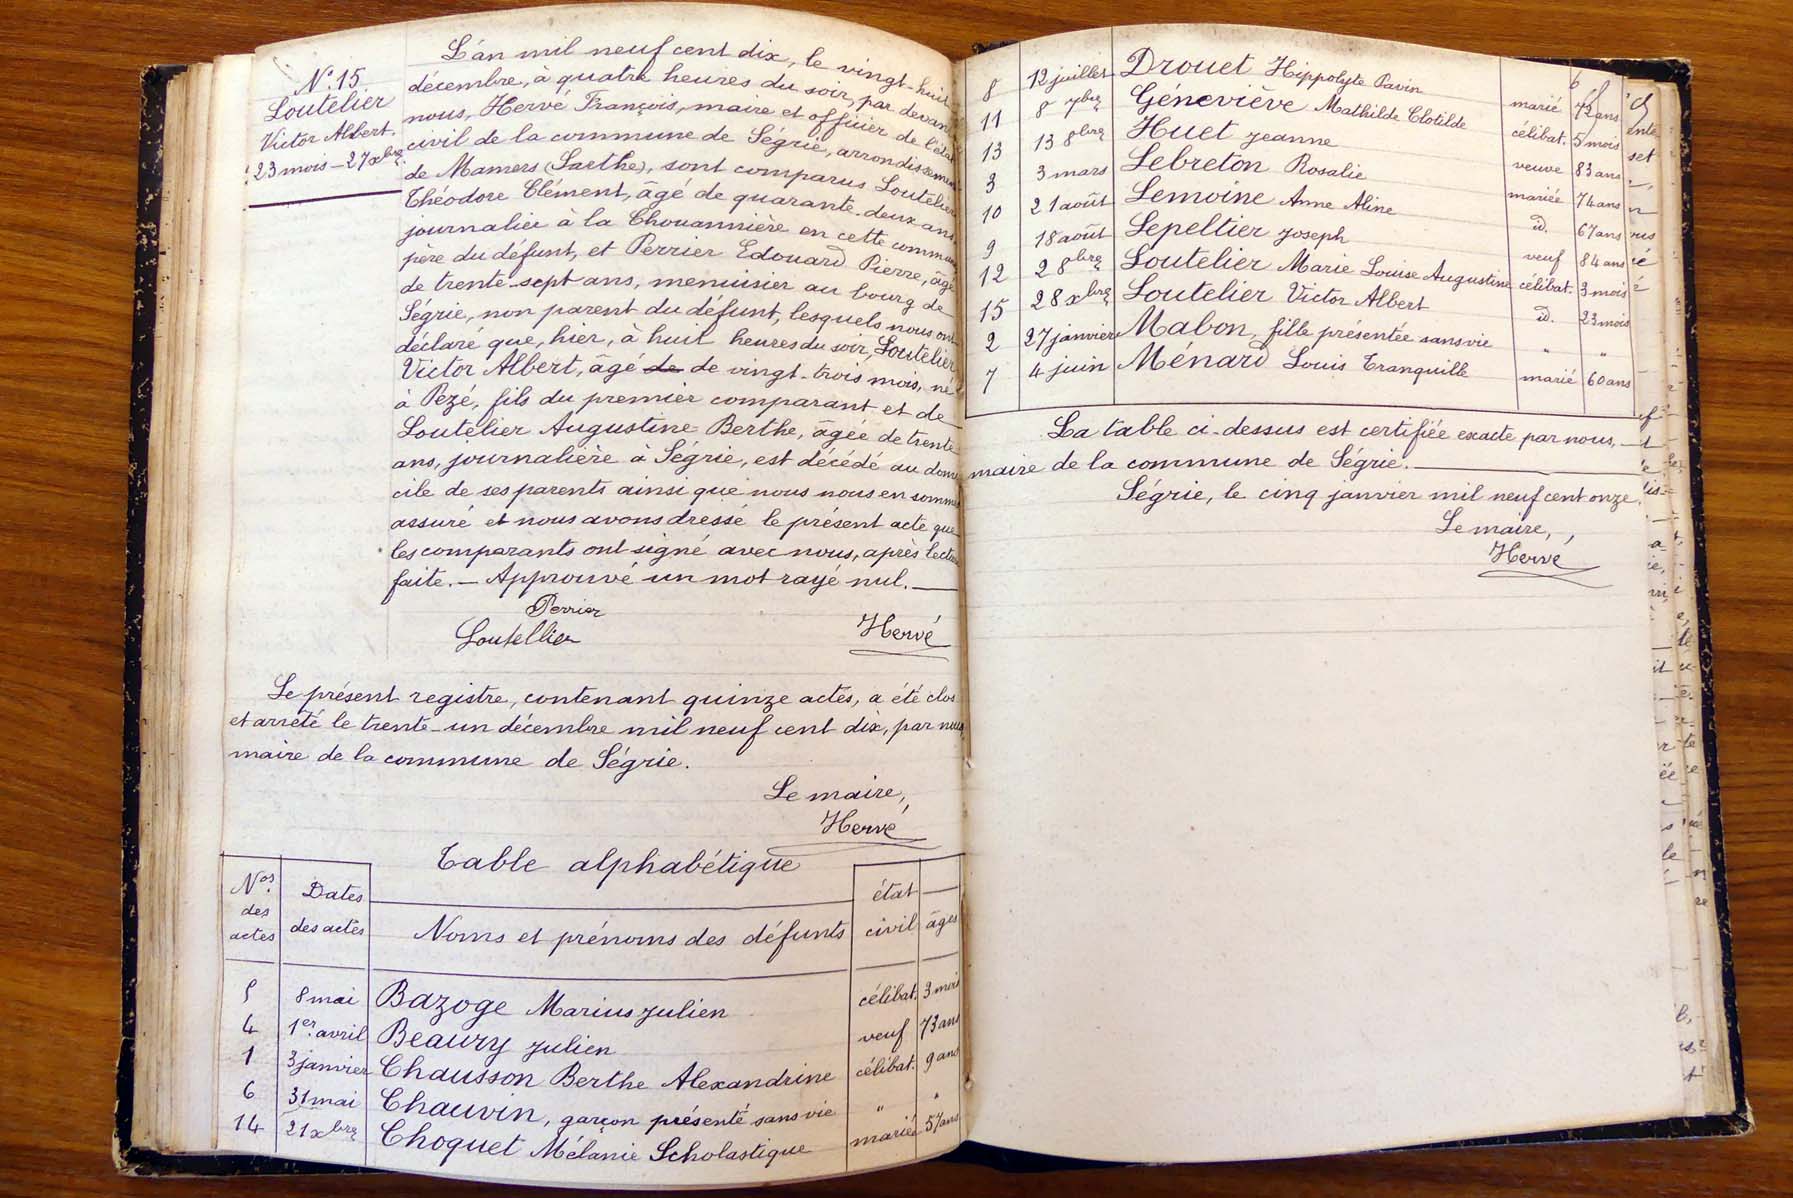 N° 15
Loutelier
Victor Albert.
23 mois – 27 xbre
L'an mil neuf cent dix, le vingt-huit
décembre, à quatre heures du soir, par devant
nous, Hervé François, maire et officier de l'état
civil de la commune de Ségrie, arrondissement
de Mamers (Sarthe), sont comparus Loutelier
Théodore Clément, âgé de quarante-deux ans,
journalier à la Chouannière en cette commune
père du défunt, et Perrier Edouard Pierre, âgé
de trente-sept ans, menuisier au bourg de
Ségrie, non parent du défunt, lesquels nous ont
déclaré que, hier, à huit heures du soir, Loutelier
Victor Albert, âgé de de vingt-trois mois, né
à Pezé, fils du premier comparant et de
Loutelier Augustine Berthe, âgée de trente
ans, journalière à Ségrie, est décédé au domi
cile de ses parents ainsi que nous nous en sommes
assuré et nous avons dressé le présent acte que
les comparants ont signé avec nous, après lecture
faite. — Approuvé un mot rayé nul. —
Perrier
Loutellier Hervé
Le présent registre, contenant quinze actes, a été clos
et arrêté le trente-un décembre mil neuf cent dix, par nous,
maire de la commune de Ségrie.
Le maire,
Hervé
Table alphabétique
Nos des actes | Dates des actes | Noms et prénoms des défunts | état civil | âges
5 8 mai Bazoge Marius Julien célibat. 3 mois
4 1er avril Beaury Julien veuf 73 ans
1 3 janvier Chausson Berthe Alexandrine célibat. 9 ans
6 31 mai Chauvin, garçon présenté sans vie " "
14 21 xbre Choquet Mélanie Scholastique mariée 57 ans
8 12 juillet Drouet Hippolyte Pavin marié 72 ans
11 8 7bre Géneviève Mathilde Clotilde célibat. 5 mois
13 13 8bre Huet Jeanne veuve 83 ans
3 3 mars Lebreton Rosalie mariée 74 ans
10 21 août Lemoine Anne Aline id. 67 ans
9 18 août Lepeltier Joseph veuf 84 ans
12 2 8bre Loutelier Marie Louise Augustine célibat. 3 mois
15 28 xbre Loutelier Victor Albert id. 23 mois
2 27 janvier Mabon, fille présentée sans vie " "
7 4 juin Ménard Louis Tranquille marié 60 ans
La table ci-dessus est certifiée exacte par nous,
maire de la commune de Ségrie.
Ségrie, le cinq janvier mil neuf cent onze.
Le maire,
Hervé